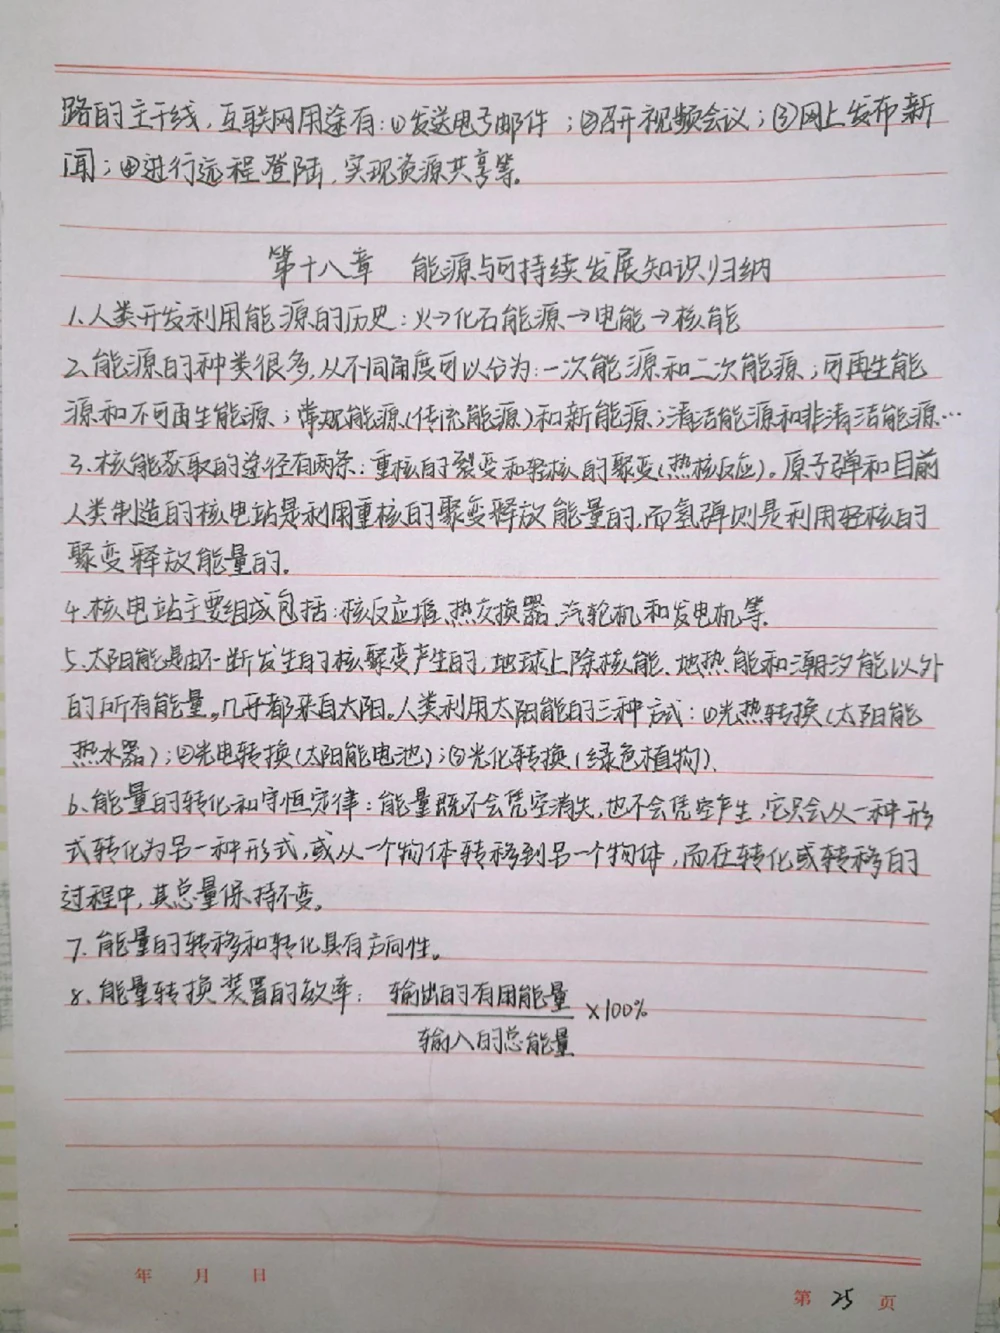 路的主干线，互联网用途有：①发送电子邮件；②召开视频会议；③网上发布新
闻；④进行远程登陆，实现资源共享等。
第十八章 能源与可持续发展知识归纳
1、人类开发利用能源的历史：火→化石能源→电能→核能
2、能源的种类很多，从不同角度可以分为：一次能源和二次能源；可再生能
源和不可再生能源；常规能源(传统能源)和新能源；清洁能源和非清洁能源…
3、核能获取的途径有两条：重核的裂变和轻核的聚变(热核反应)。原子弹和目前
人类制造的核电站是利用重核的聚变释放能量的，而氢弹则是利用轻核的
聚变释放能量的。
4、核电站主要组成包括：核反应堆、热交换器、汽轮机和发电机等。
5、太阳能是由不断发生的核聚变产生的，地球上除核能、地热能和潮汐能以外
的所有能量。几乎都来自太阳。人类利用太阳能的三种方式：①光热转换(太阳能
热水器)；②光电转换(太阳能电池)；③光化转换(绿色植物)、
6、能量的转化和守恒定律：能量既不会凭空消失，也不会凭空产生，它只会从一种形
式转化为另一种形式，或从一个物体转移到另一个物体，而在转化或转移的
过程中，其总量保持不变。
7、能量的转移和转化具有方向性。
8、能量转换装置的效率： 输出的有用能量 ×100%
输入的总能量
年 月 日
第 25 页